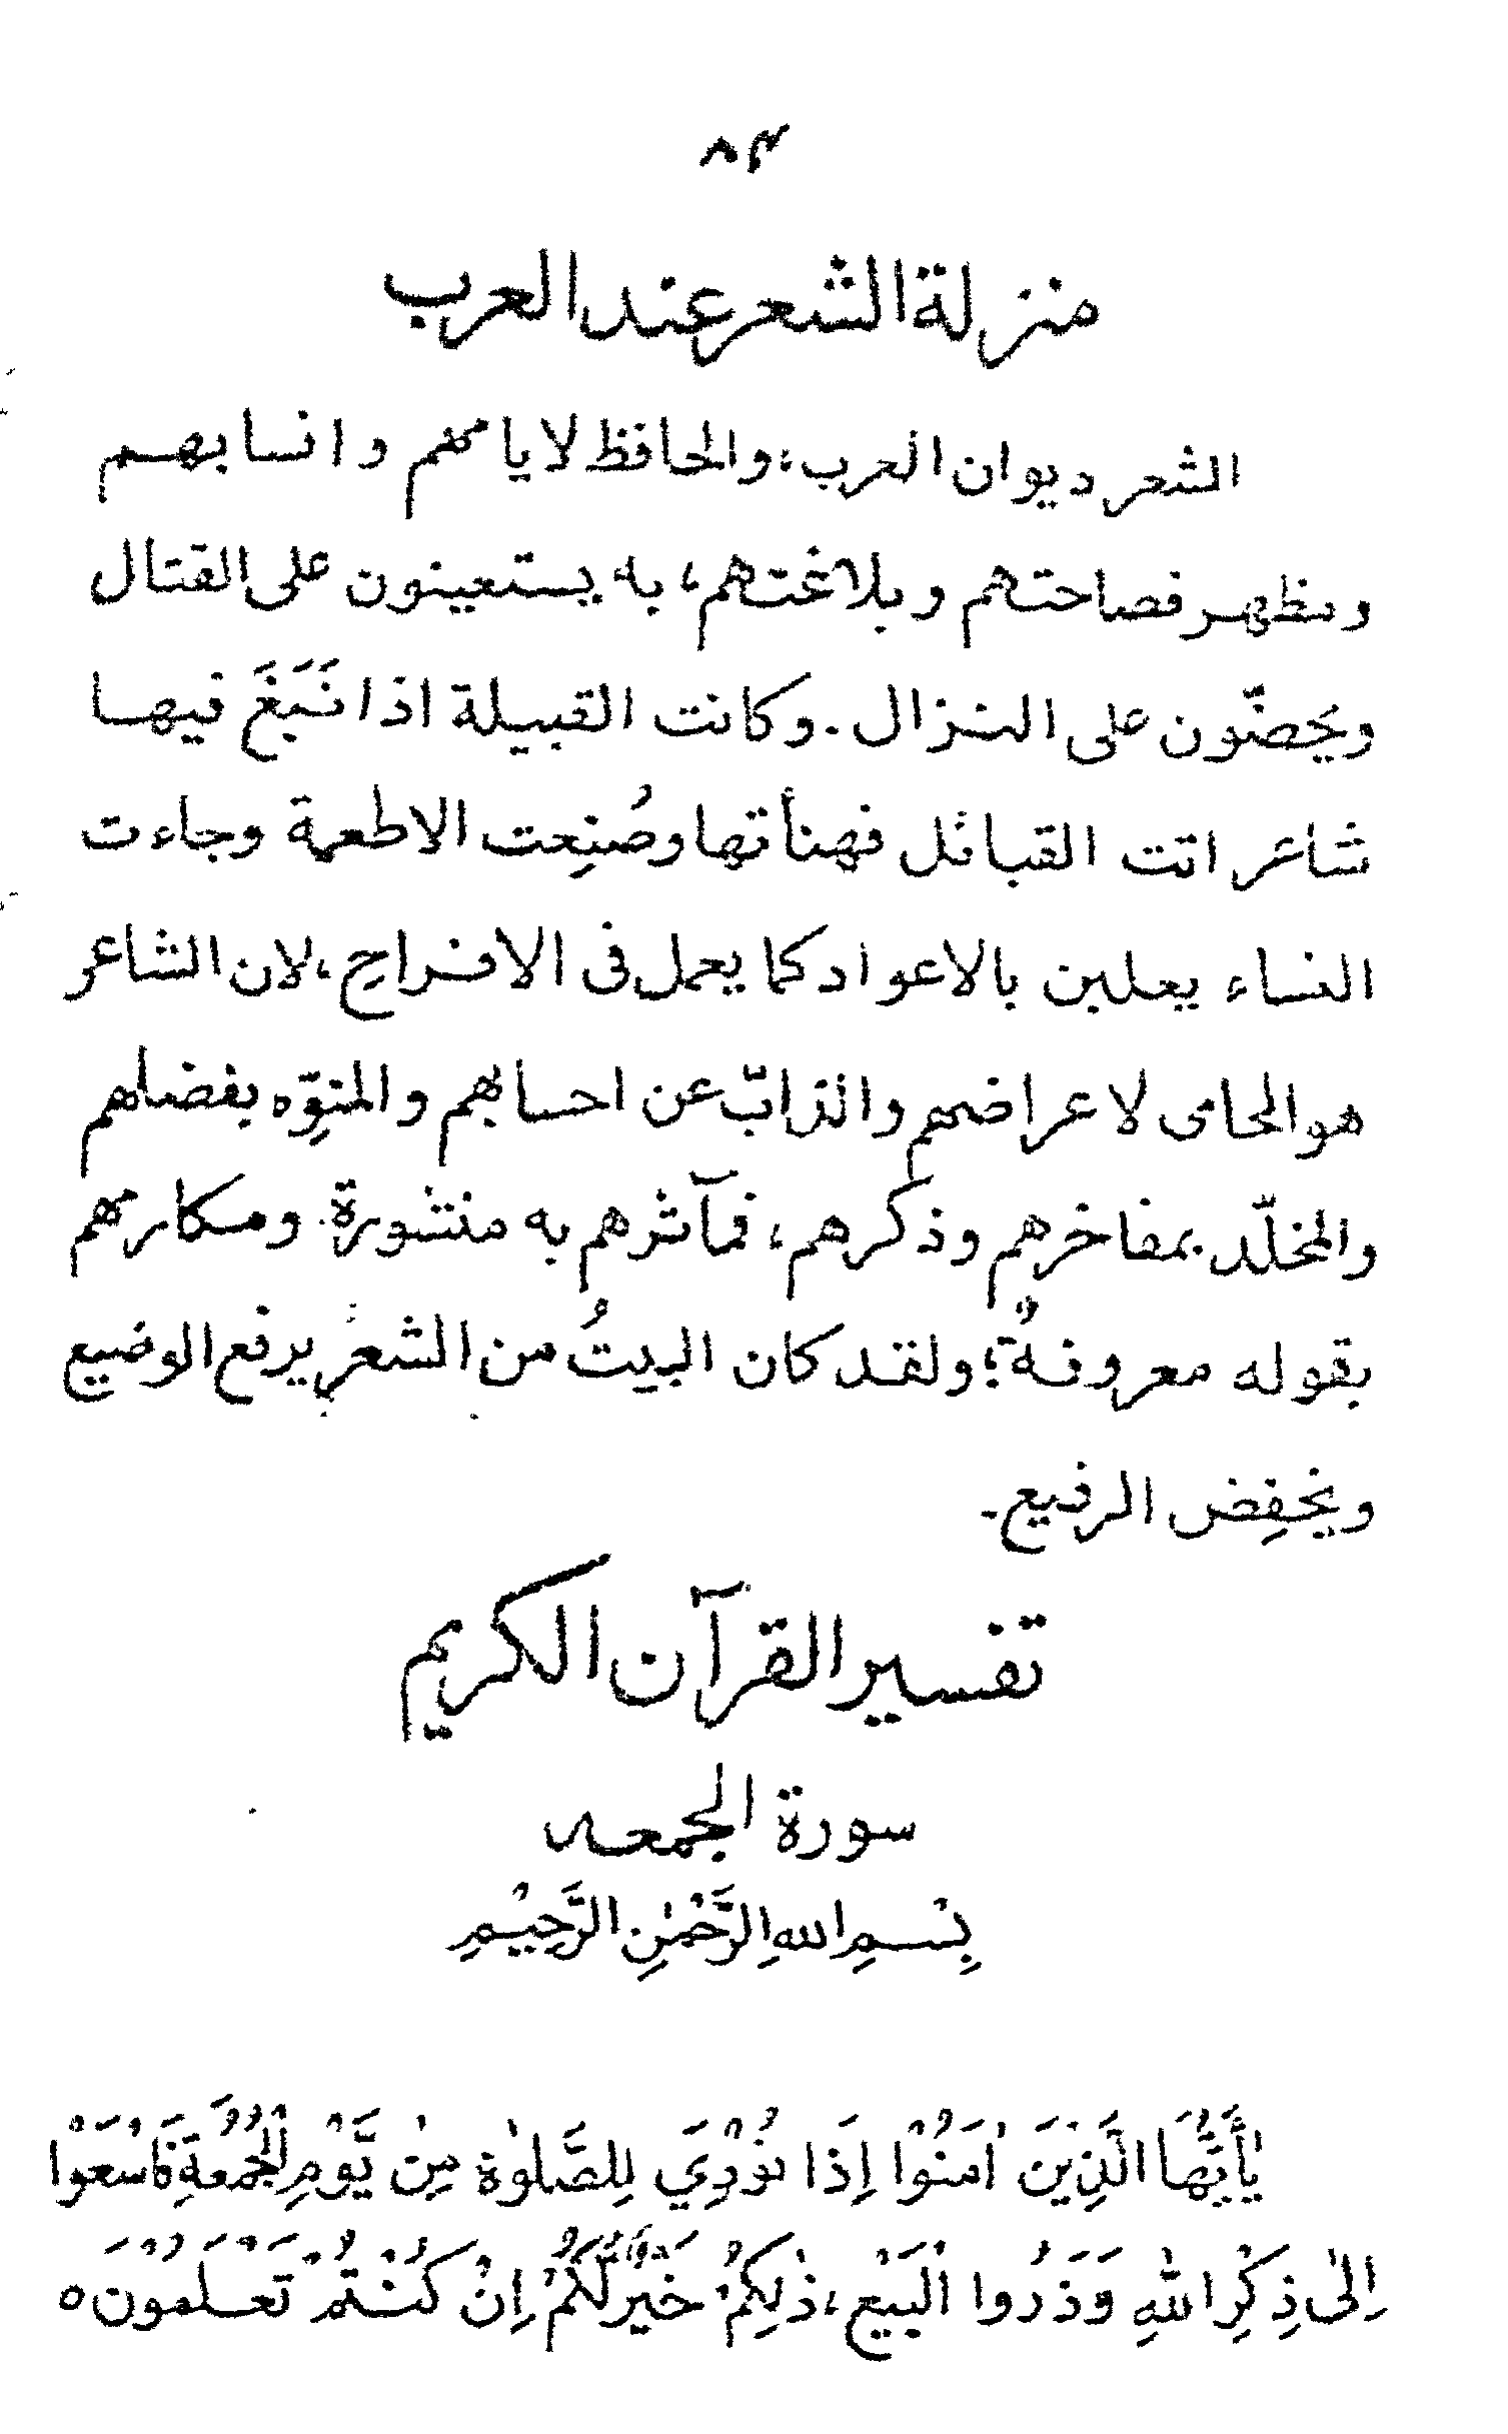 ۸۴
منزلة الشعر عند العرب
الشعر ديوان العرب، والحافظ لايامهم وانسابهم
ومظهر فصاحتهم وبلاغتهم، به يستعينون على القتال
ويحضّون على النزال. وكانت القبيلة اذا نَبَغَ فيها
شاعر اتت القبائل فهنأتها وصُنِعت الاطعمة وجاءت
النساء يعلبن بالاعواد كما يعمل فى الافراح، لان الشاعر
هو الحامى لاعراضهم والذابّ عن احسابهم والمنوِّه بفضلهم
والمخلّد بمفاخرهم وذكرهم، فمآثرهم به منشورة ومكارمهم
بقوله معروفةٌ؛ ولقد كان البيتُ من الشعر يرفع الوضيع
ويخفِض الرفيع۔
تفسير القرآن الكريم
سورة الجمعه
بِسْمِ اللهِ الرَّحْمٰنِ الرَّحِيْمِ
يٰأَيُّهَا الَّذِيْنَ اٰمَنُوْا إِذَا نُوْدِيَ لِلصَّلوٰة مِنْ يَّوْمِ الْجُمُعَةِ فَاسْعَوْا
اِلىٰ ذِكْرِ اللّٰهِ وَذَرُوا الْبَيْع، ذٰلِكُمْ خَيْرٌ لَّكُمْ اِنْ كُنْتُمْ تَعْلَمُوْنَ ه